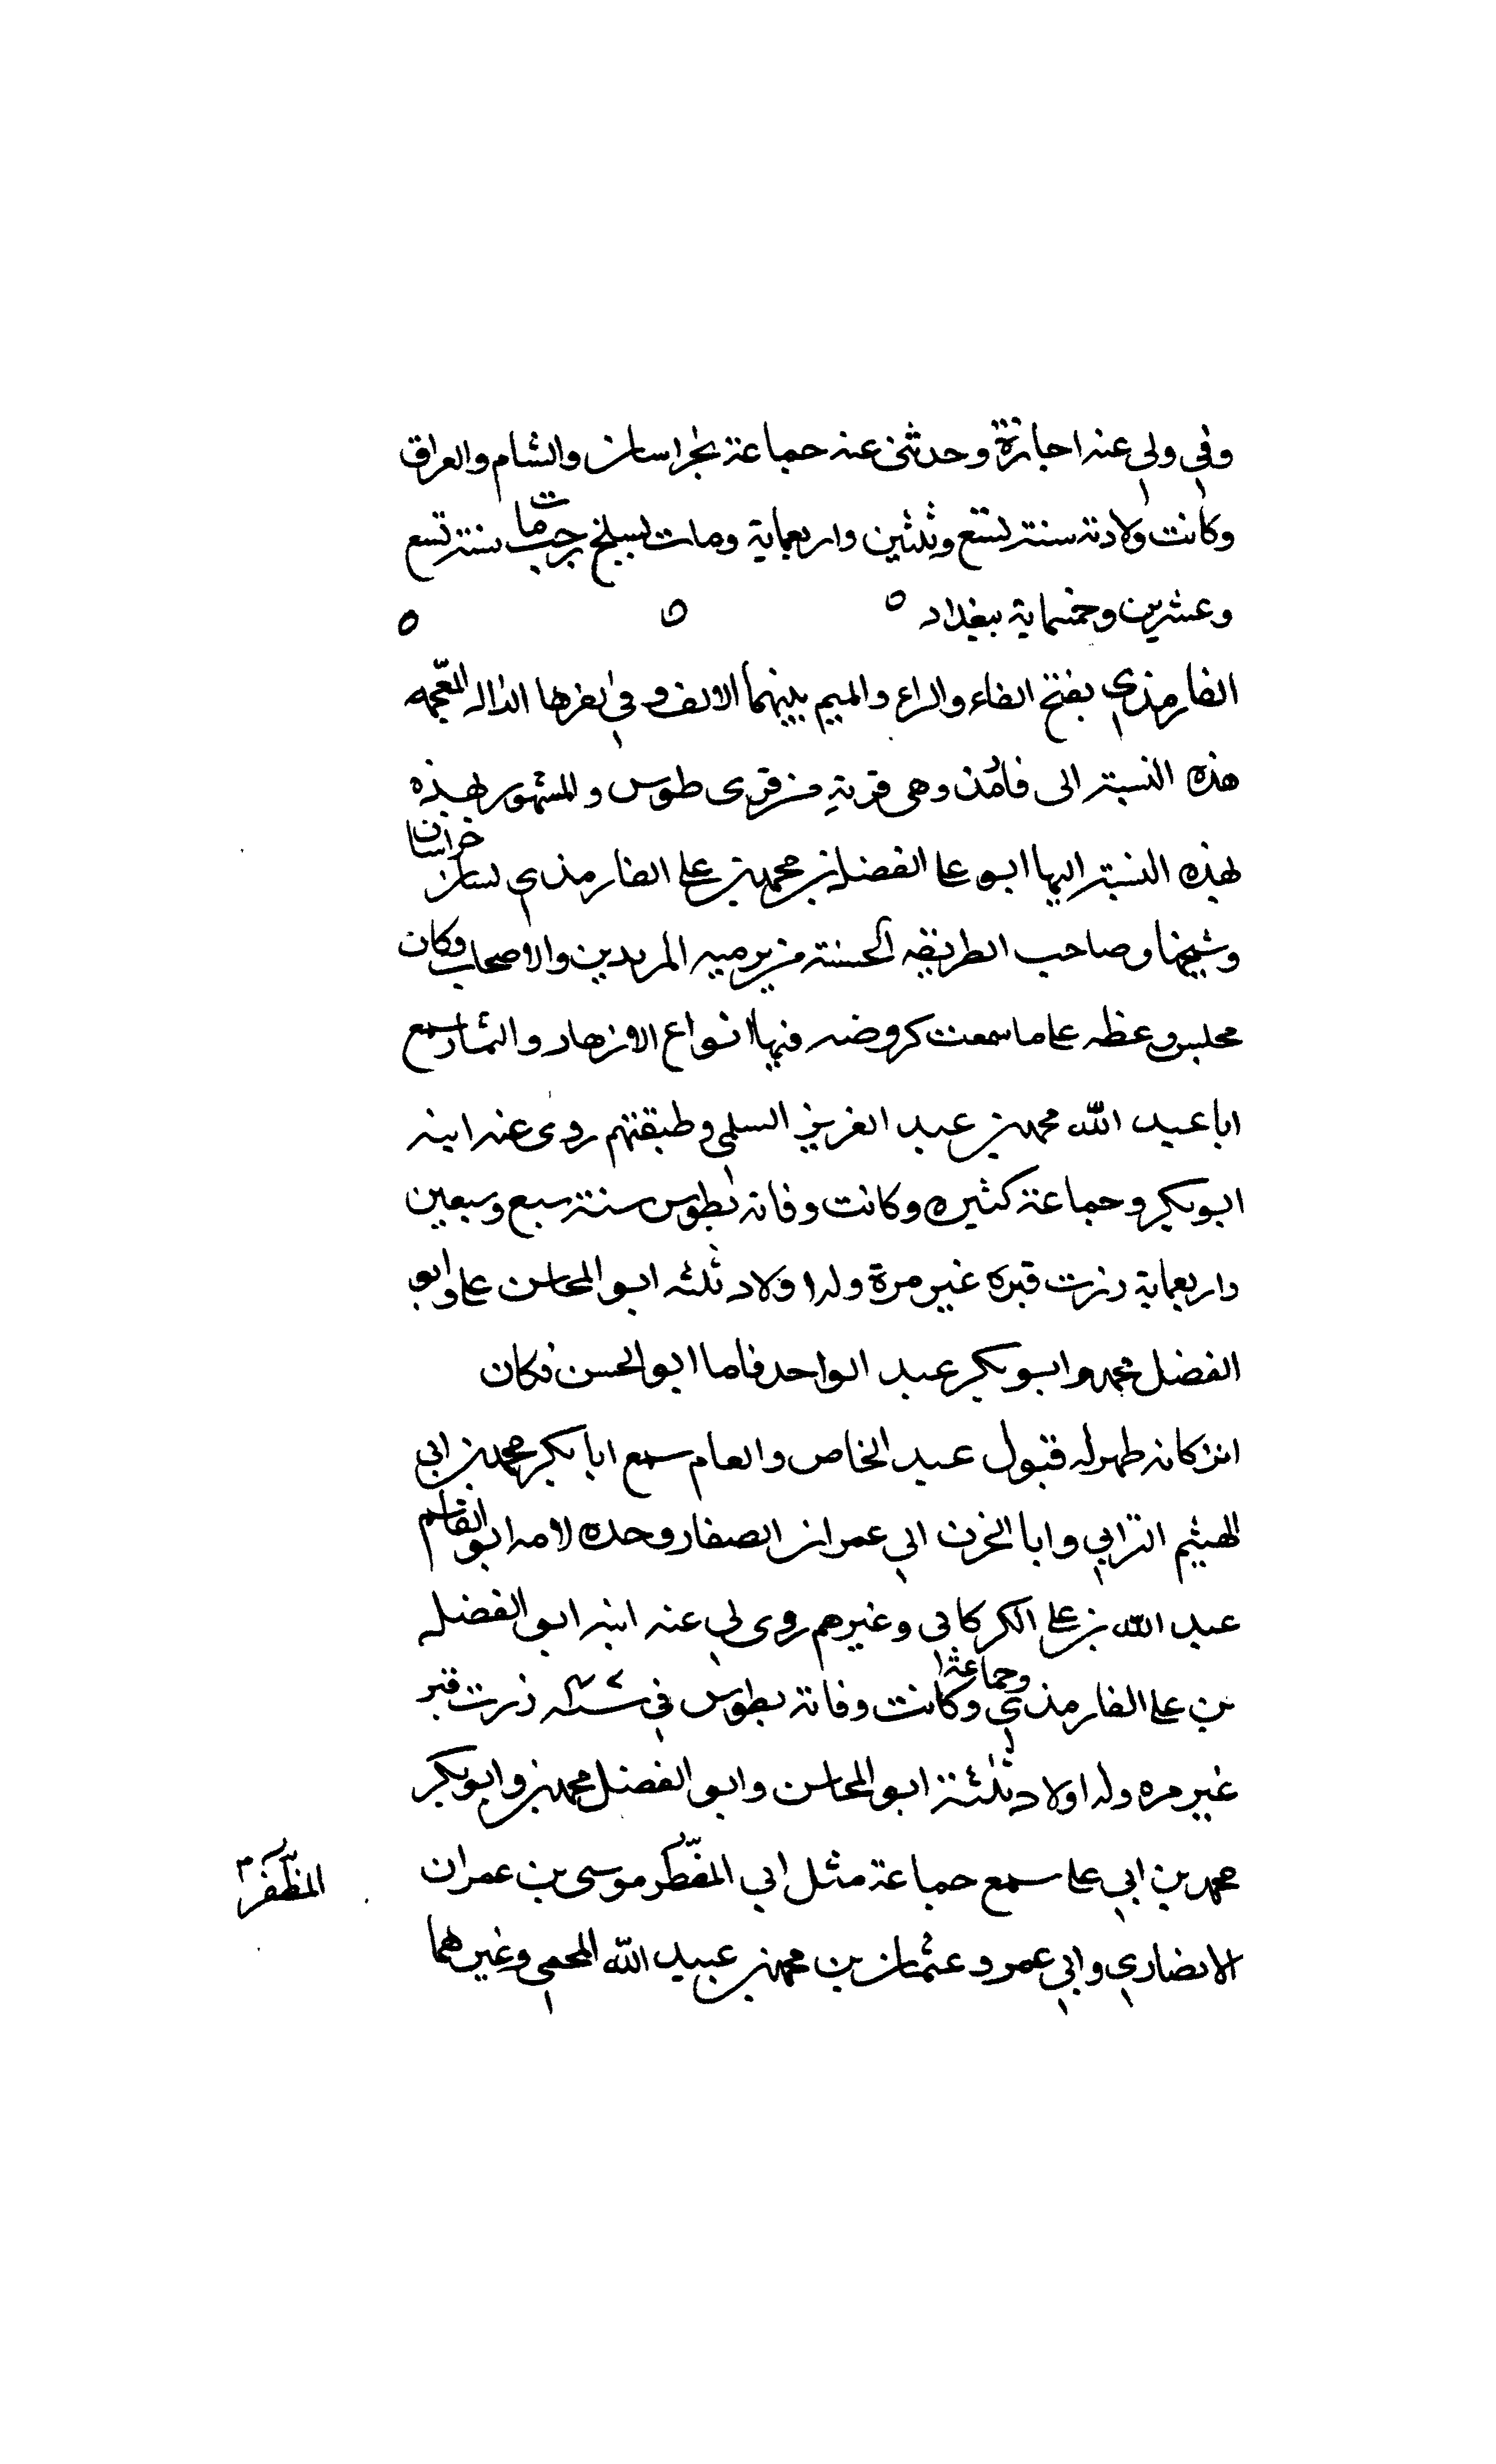 وفي ولي عنه اجازة وحدثنى عنه جماعة بخراسان والشام والعراق
وكانت ولادته سنة تسع وثلثين واربعماية ومات بسلخ رجب مات سنة تسع
وعشرين وخمسماية ببغداد ه ه ه
الفارمذي بفتح الفاء والراء والميم بينهما الالف وفي اخرها الذال المعجمه
هذه النسبة الى فارمذ وهى قرية من قرى طوس والمشهور بهذه
بهذه النسبة اليها ابو على الفضل بن محمد بن على الفارمذي لسان خراسان
وشيخها وصاحب الطريقه الحسنة من تربيه المريدين والاصحاب وكان
مجلس وعظه على ما سمعت كروضه فيها انواع الازهار والثمار سمع
ابا عبد الله محمد بن عبد العزيز السلمي وطبقتهم روى عنه ابنه
ابو بكر وجماعة كثيره وكانت وفاته بطوس سنة سبع وسبعين
واربعماية وزرت قبره غير مرة وله اولاد ثلثه ابو المحاسن على وابو
الفضل محمد وابو بكر عبد الواحد فاما ابو الحسن فكان
كان ظهر له قبول عند الخاص والعام سمع ابا بكر محمد بن ابي
الهيثم الترابي وابا ابي عمران الصفار وجده لامه ابو القاسم
عبد الله بن على الكركاني وغيرهم روى لي عنه ابنه ابو الفضل
بن على الفارمذي وجماعة وكانت وفاته بطوس في زرت قبر
غير مره وله اولاد ثلثة ابو المحاسن وابو الفضل محمد بن وابو بكر
محمد بن ابي على سمع جماعة مثل ابي المفطر موسى بن عمران
المظفر
الانصاري وابي عمرو عثمان بن محمد بن عبيد الله المحمي وغيرهما